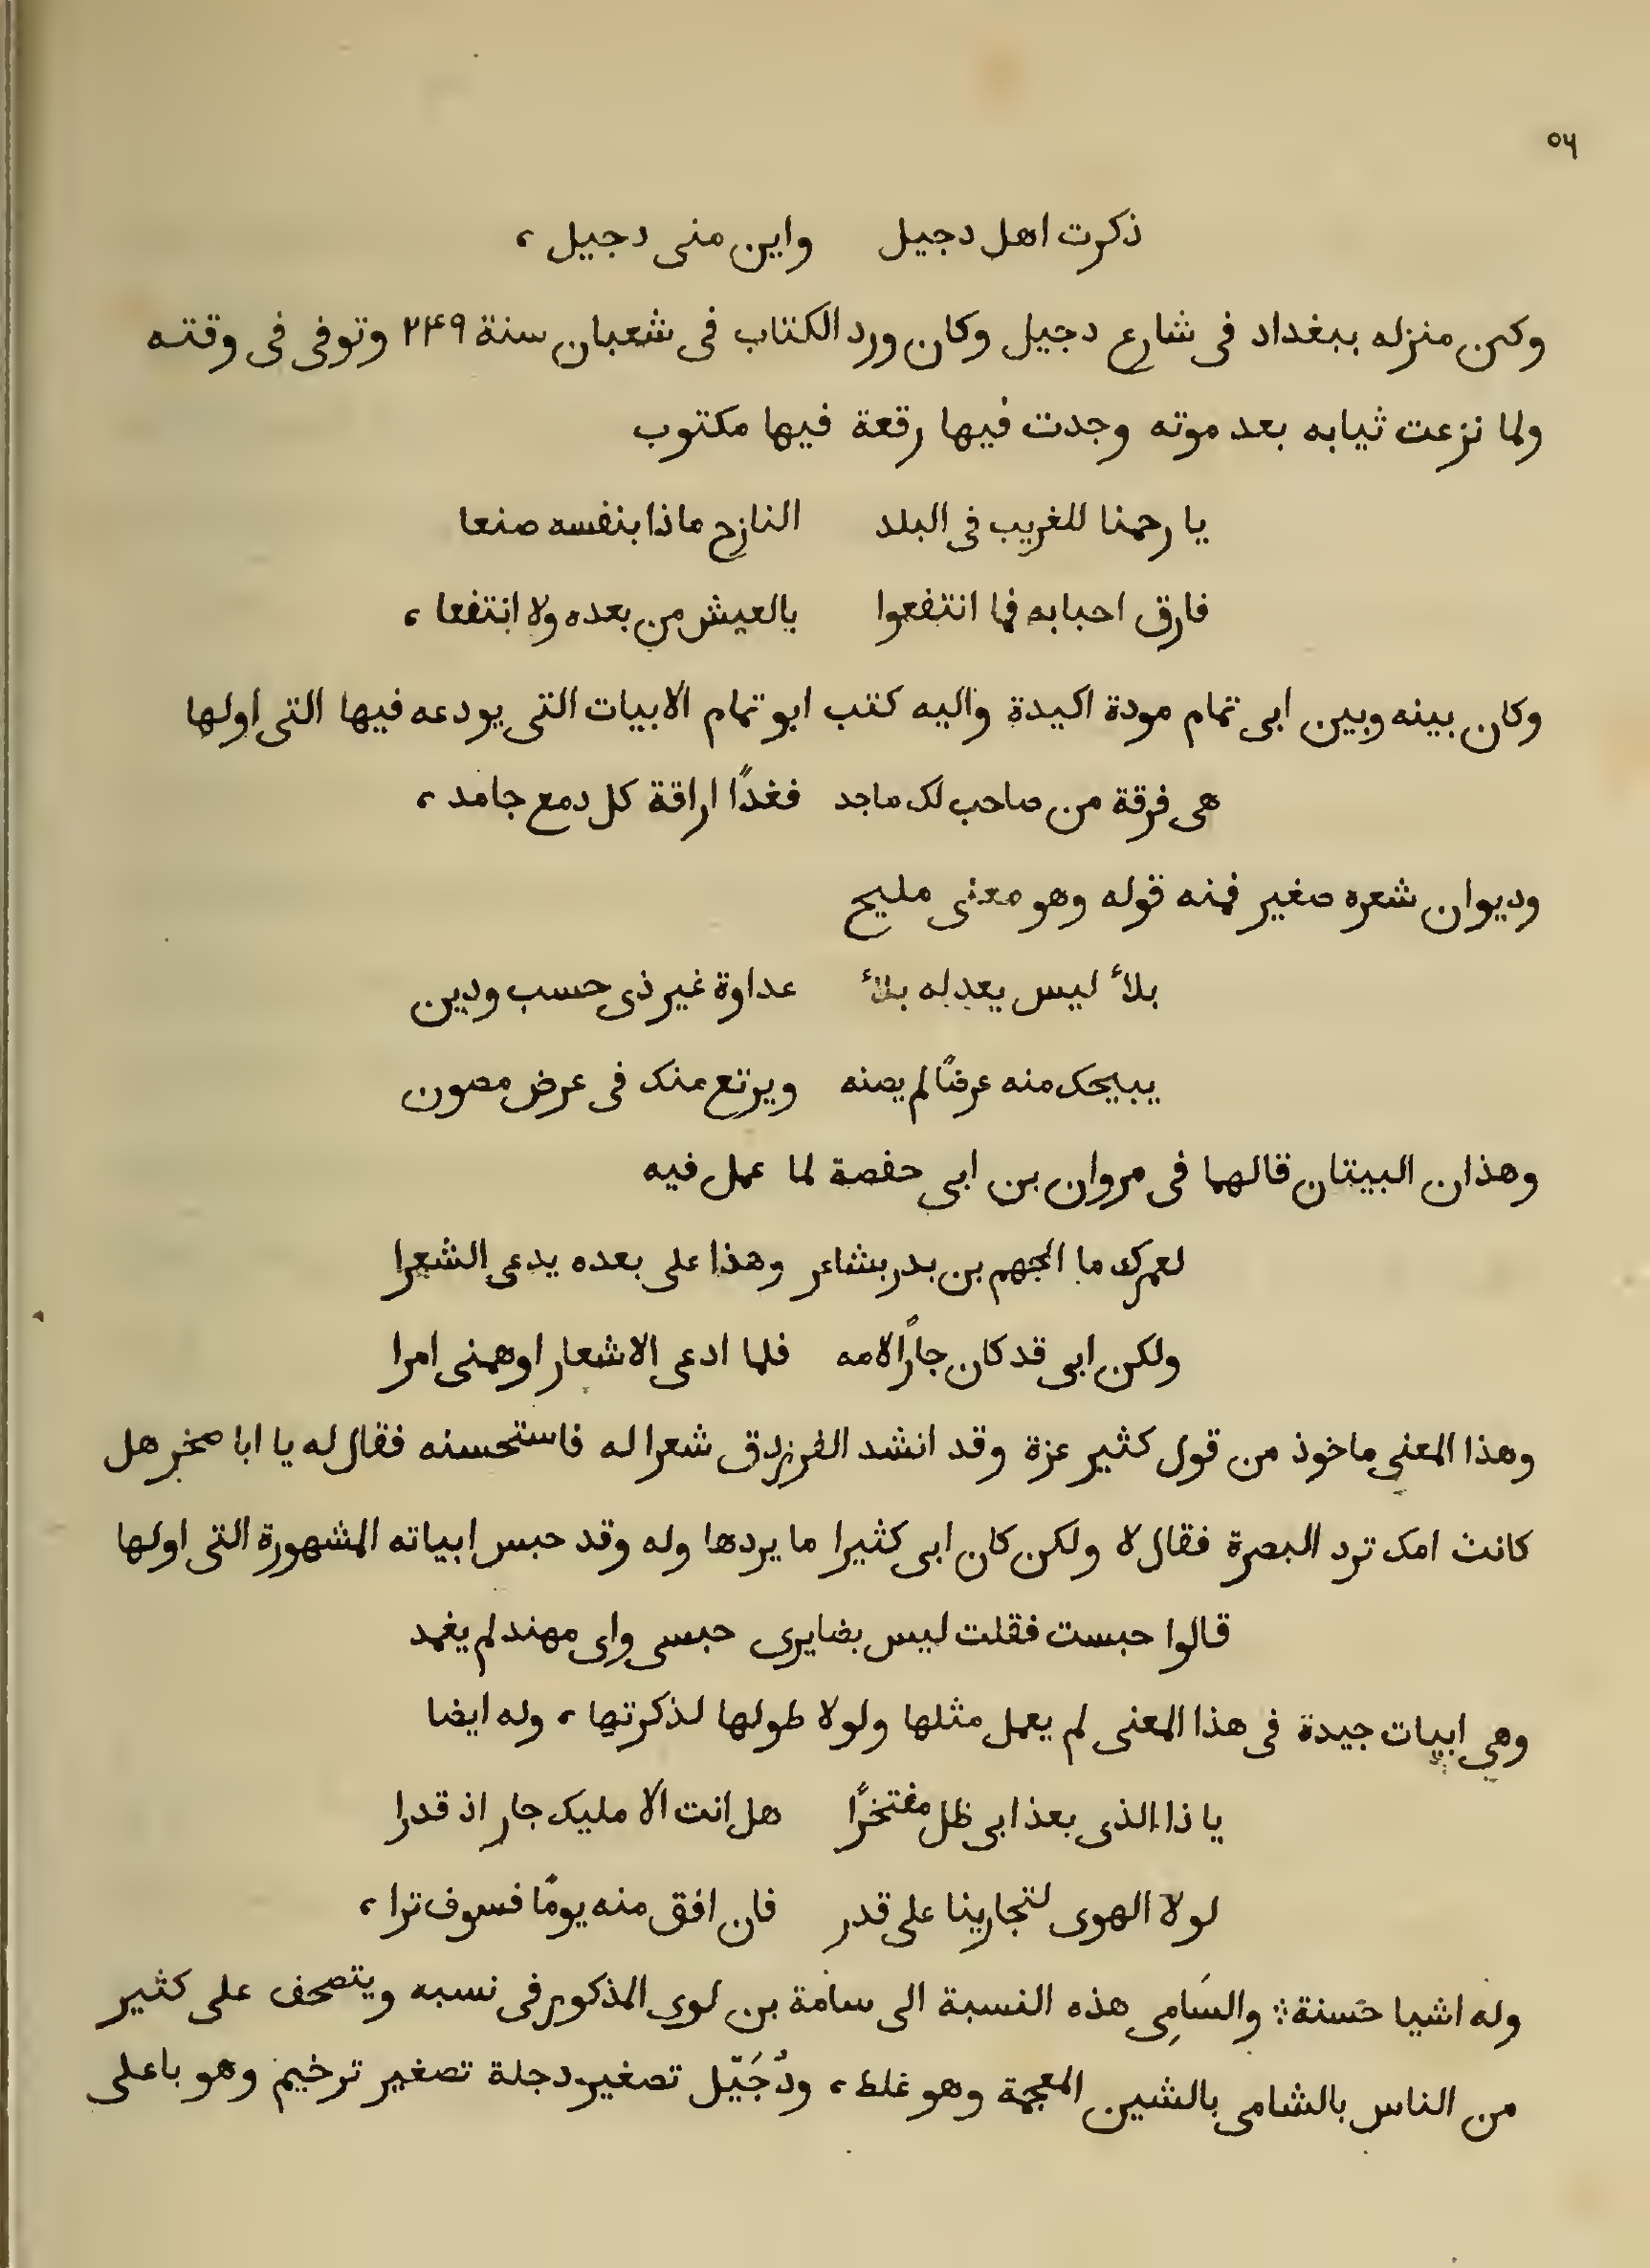 ٥٦
ذكرت اهل دجيل واين منى دجيل ،
وكن منزله ببغداد فى شارع دجيل وكان ورد الكتاب فى شعبان سنة ٢٤٩ وتوفى فى وقته
ولما نزعت ثيابه بعد موته وجدت فيها رقعة فيها مكتوب
يا رحمنا للغريب فى البلد النازح ماذا بنفسه صنعا
فارق احبابه فما انتفعوا بالعيش من بعده ولا انتفعا ،
وكان بينه وبين ابى تمام مودة اكيدة واليه كتب ابو تمام الابيات التى يودعه فيها التى اولها
هى فرقة من صاحب لك ماجد فغدًا اراقة كل دمع جامد ،
وديوان شعره صغير فمنه قوله وهو معنى مليح
بلاٴ ليس يعدله بلاٴ عداوة غير ذى حسب ودين
يبيحك منه عرضًا لم يصنه ويرتع منك فى عرض مصون
وهذان البيتان قالهما فى مروان بن ابى حفصة لما عمل فيه
لعمرك ما الجهم بن بدر بشاعر وهذا على بعده يدعى الشعرا
ولكن ابى قد كان جارًا لامه فلما ادعى الاشعار اوهمنى امرا
وهذا المعنى ماخوذ من قول كثير عزة وقد انشد الفرزدق شعرا له فاستحسنه فقال له يا ابا صخر هل
كانت امك ترد البصرة فقال لا ولكن كان ابى كثيرا ما يردها وله وقد حبس ابياته المشهورة التى اولها
قالوا حبست فقلت ليس بضايرى حبسى واى مهند لم يغمد
وهى ابيات جيدة فى هذا المعنى لم يعمل مثلها ولولا طولها لذكرتها ، وله ايضا
يا ذا الذى بعذابى ظل مفتخرًا هل انت الا مليك جار اذ قدرا
لولا الهوى لتجارينا على قدر فان افق منه يومًا فسوف ترا ،
وله اشيا حَسنة ؞ والسَامِى هذه النسبة الى سامة بن لوى المذكور فى نسبه ويتصحف على كثير
من الناس بالشامى بالشين المعجمة وهو غلط ، ودُجَيّل تصغير دجلة تصغير ترخيم وهو باعلى